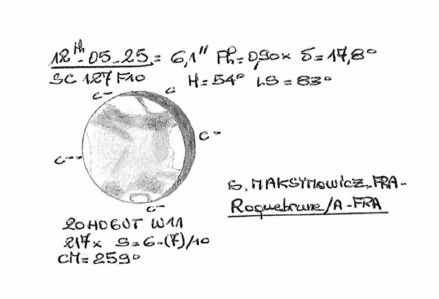 12Th-05-25= 6,1" Ph=0,90x δ=17,8°
SC 127 F10 H=54° LS=83°
C- C
C-
C--
C-
20H06UT W11
217x S=6-(7)/10
CM=259°
S. MAKSYMOWICZ-FRA-
Roquebrune/A-FRA